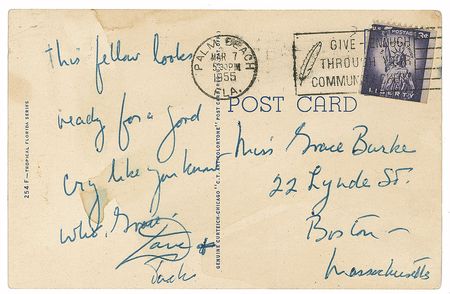 this fellow looks
ready for a good
cry like you know
who, Grace.
Love
Jack
PALM BEACH
MAR 7
5:30PM
1955
FLA.
GIVE
THROUGH
COMMUN
U.S. POSTAGE
3¢
LIBERTY
POST CARD
Miss Grace Burke
22 Lynde St.
Boston –
Massachusetts
254 F—TROPICAL FLORIDA SERIES
GENUINE CURTEICH-CHICAGO "C.T. ART-COLORTONE" POST CARD